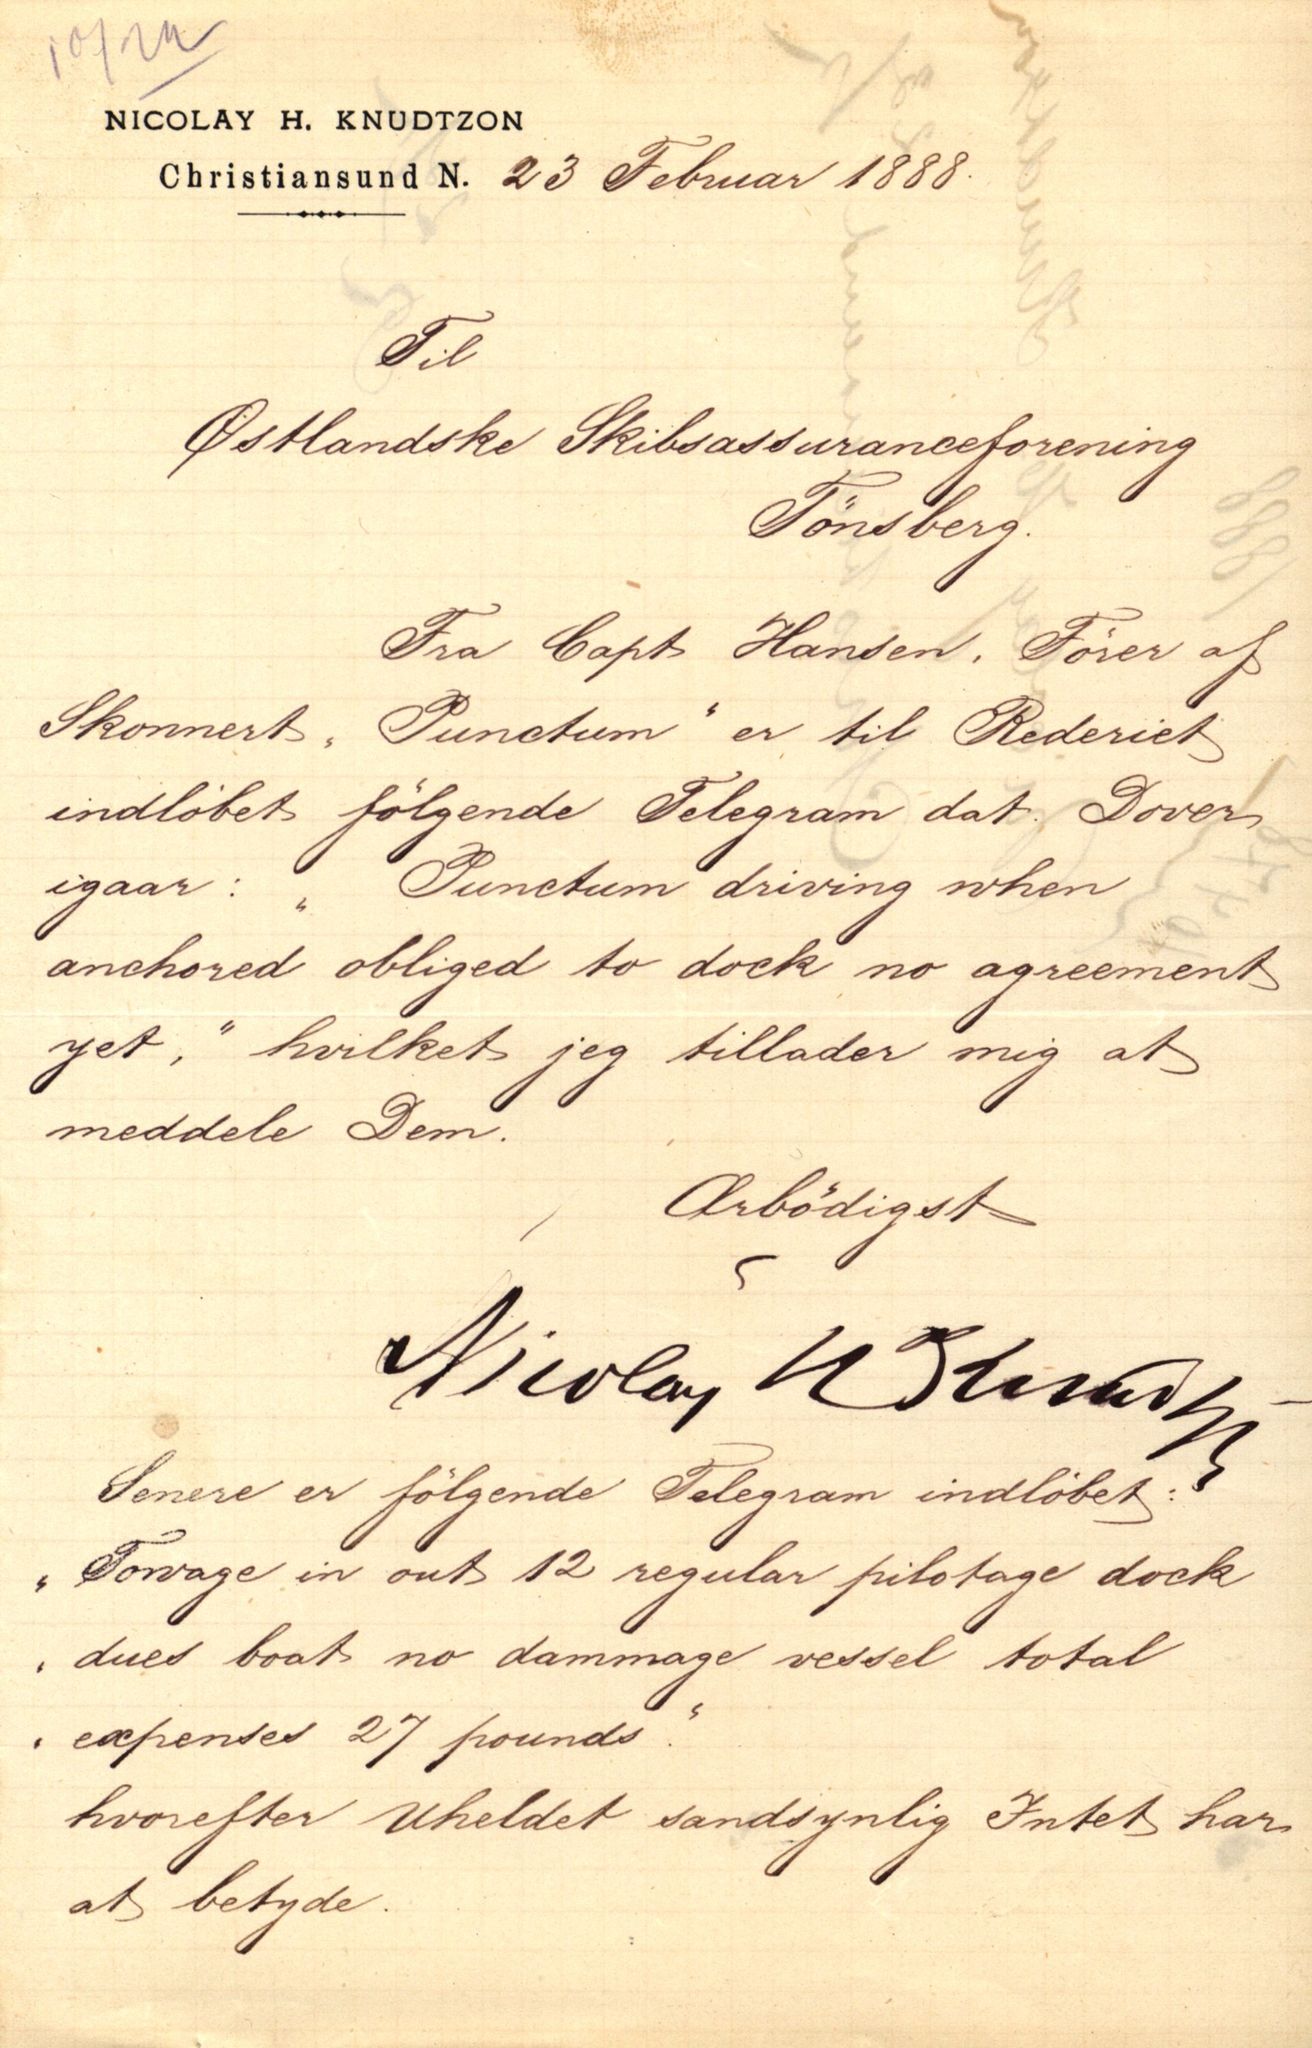 NICOLAY H. KNUDTZON
Christiansund N. 23 Februar 1888.
Til
Østlandske Skibsassuranceforening
Tönsberg.
Fra Capt Hansen, Förer af
Skonnert „Punctum“ er til Rederiet
indlöbet fölgende Telegram dat. Dover
igaar: „Punctum driving when
anchored obliged to dock no agreement
yet,“ hvilket jeg tillader mig at
meddele Dem.
Ærbödigst
Nicolay H Knudtzon
Senere er fölgende Telegram indlöbet:
„Towage in out 12 regular pilotage dock
„dues boat no dammage vessel total
„expenses 27 pounds.“
hvorefter Uheldet sandsynlig Intet har
at betyde.